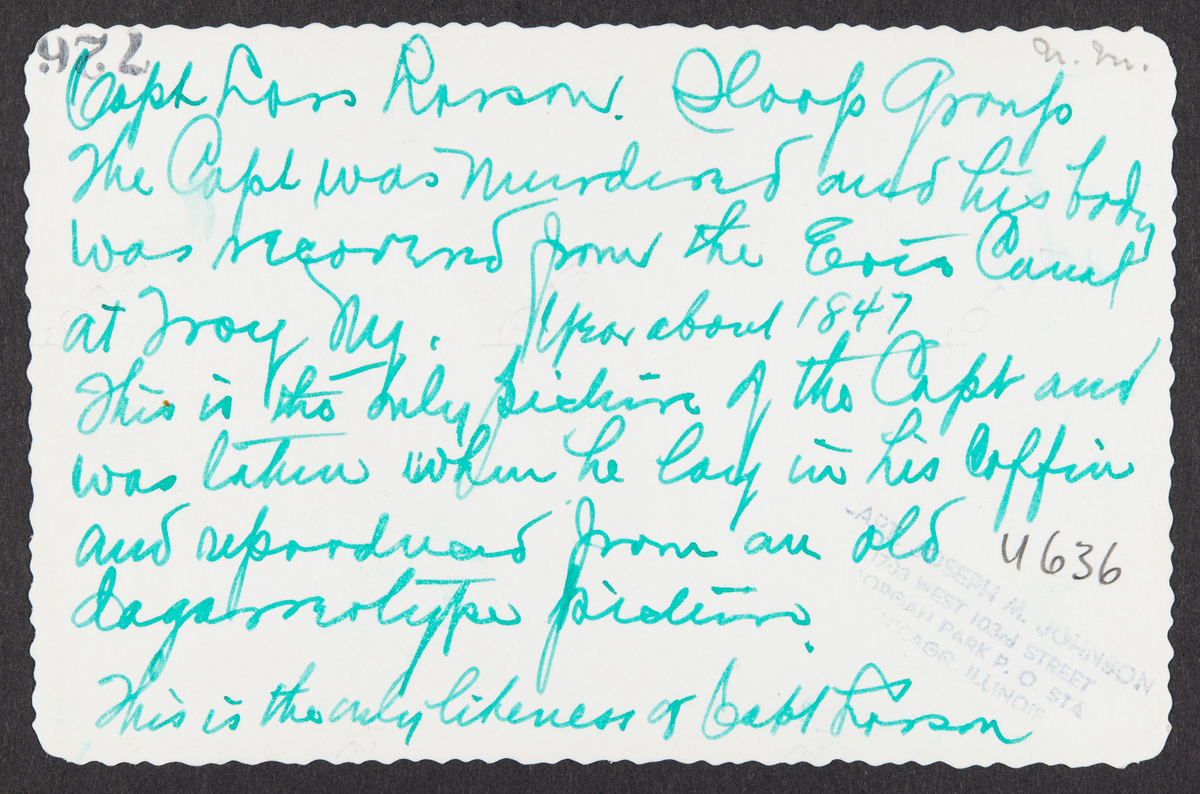 972.
n. m.
Capt Lars Larson. Sloop Group
The Capt was Murdered and his body
was recovered from the Erie Canal
at Troy Ny. Year about 1847
This is the only picture of the Capt and
was taken when he lay in his Coffin
and reproduced from an old
dagarreotype picture.
This is the only likeness of Capt Larson
U636
CAPT. JOSEPH M. JOHNSON
WEST 103rd STREET
MORGAN PARK P. O. STA
CHICAGO, ILLINOIS